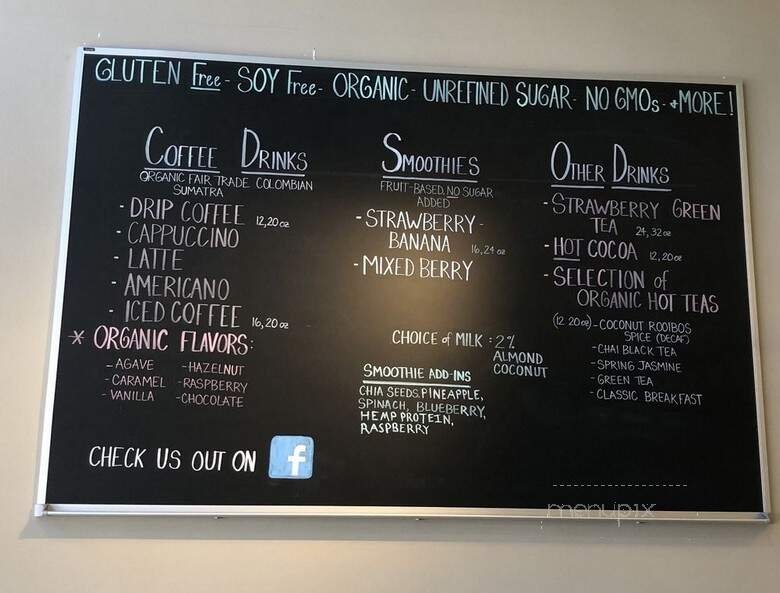 GLUTEN Free - SOY Free - ORGANIC - UNREFINED SUGAR - NO GMOs - + MORE!
COFFEE DRINKS
ORGANIC FAIR TRADE COLOMBIAN
SUMATRA
- DRIP COFFEE 12, 20 oz
- CAPPUCCINO
- LATTE
- AMERICANO
- ICED COFFEE 16, 20 oz
* ORGANIC FLAVORS:
- AGAVE - HAZELNUT
- CARAMEL - RASPBERRY
- VANILLA - CHOCOLATE
CHECK US OUT ON f
SMOOTHIES
FRUIT-BASED, NO SUGAR
ADDED
- STRAWBERRY -
BANANA 16, 24 oz
- MIXED BERRY
CHOICE of MILK : 2%
ALMOND
COCONUT
SMOOTHIE ADD-INS
CHIA SEEDS, PINEAPPLE,
SPINACH, BLUEBERRY,
HEMP PROTEIN,
RASPBERRY
OTHER DRINKS
- STRAWBERRY GREEN
TEA 24, 32 oz
- HOT COCOA 12, 20 oz
- SELECTION of
ORGANIC HOT TEAS
(12 20 oz) - COCONUT ROOIBOS
SPICE (DECAF)
- CHAI BLACK TEA
- SPRING JASMINE
- GREEN TEA
- CLASSIC BREAKFAST
menupix